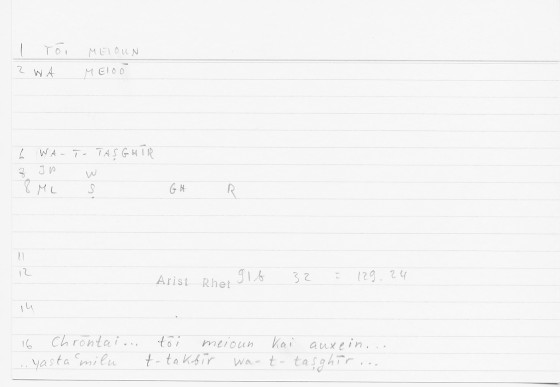 1 TŌI MEIOUN
2 WA MEIOŌ
6 WA-T-TAṢGHĪR
8 JN W
8 ML Ṣ GH R
11
12 Arist Rhet 91b 32 = 129.24
14
16 Chrōntai... tōi meioun kai auxein...
..yastaʿmilu t-takbīr wa-t-taṣghīr...